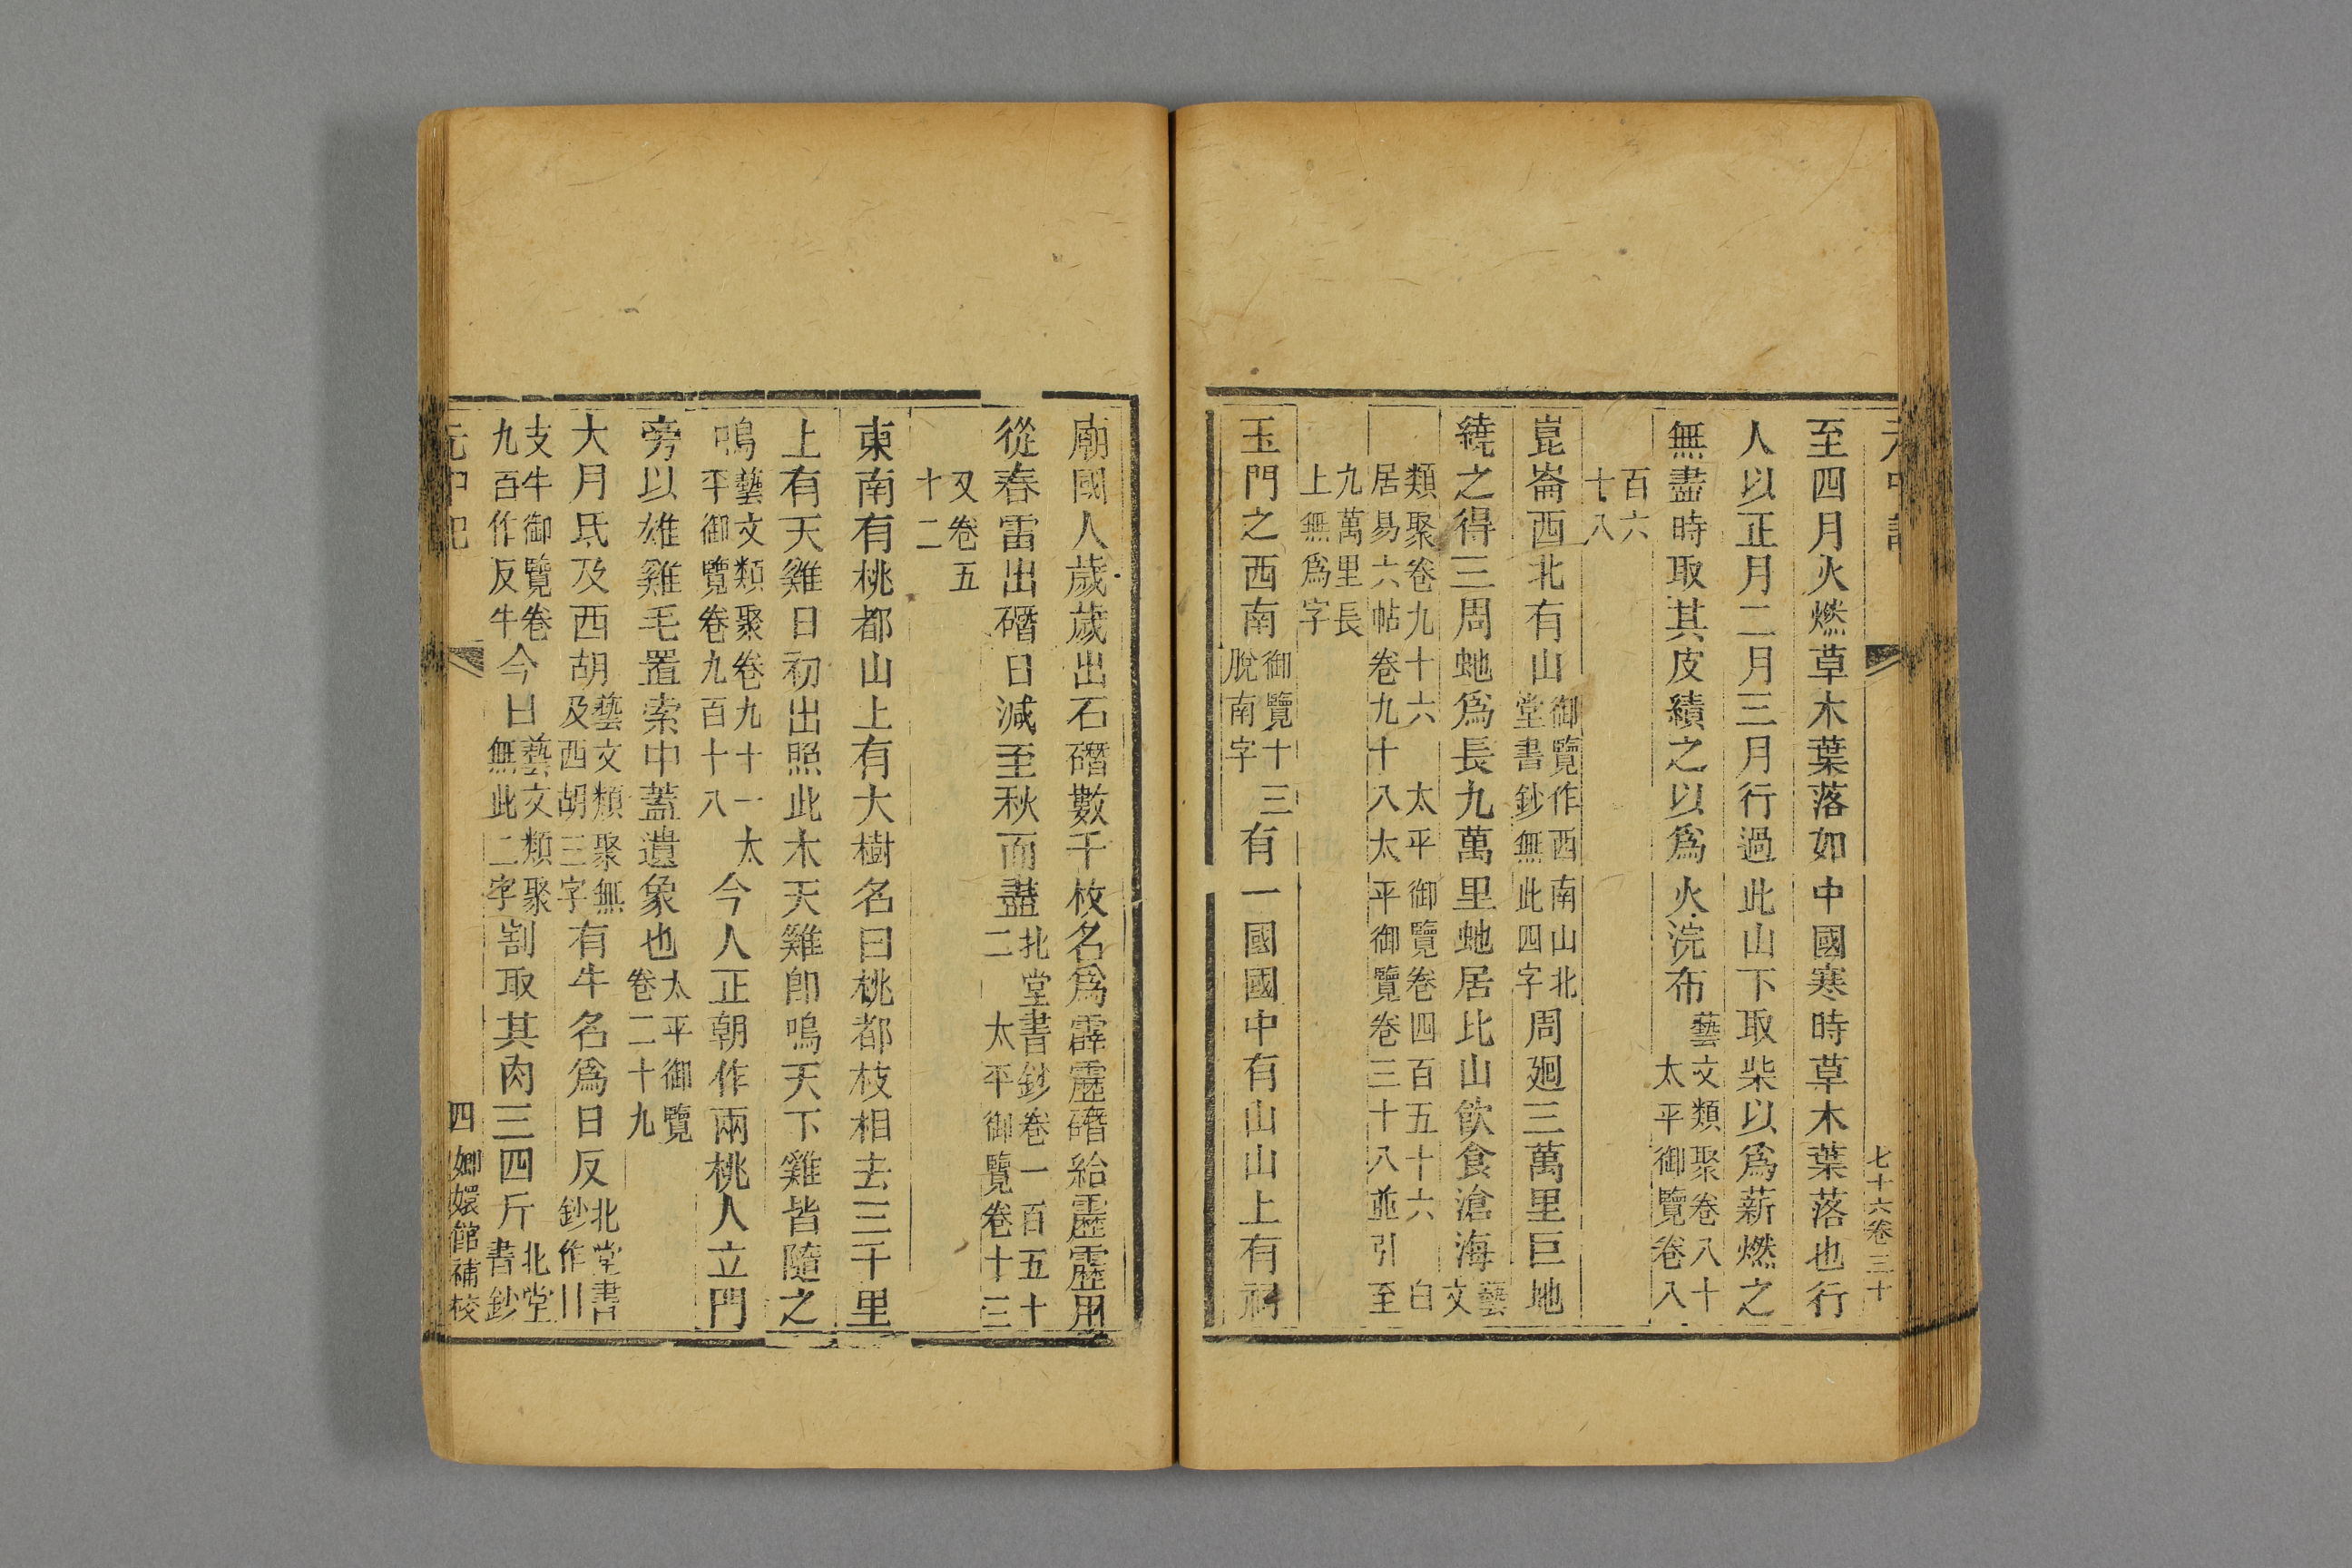 七十六卷三十
至四月火燃草木葉落如中國寒時草木葉落也行
人以正月二月三月行過此山下取柴以爲薪燃之
無盡時取其皮績之以爲火浣布藝文類聚卷八十太平御覽卷八
百六十八
崑崙西北有山御覽作西南山北堂書鈔無此四字周廻三萬里巨虵
繞之得三周虵爲長九萬里虵居比山飮食滄海藝文
類聚卷九十六太平御覽卷四百五十六白居易六帖卷九十八太平御覽卷三十八並引至
九萬里長上無爲字
玉門之西南御覽十三脫南字有一國國中有山山上有祠
廟國人歲歲出石磻數千枚名爲霹靂磻給霹靂用
從春雷出磻日減至秋而盡北堂書鈔卷一百五十二太平御覽卷十三
又卷五十二
東南有桃都山上有大樹名曰桃都枝相去三千里
上有天雞日初出照此木天雞卽鳴天下雞皆隨之
鳴藝文類聚卷九十一太平御覽卷九百十八今人正朝作兩桃人立門
旁以雄雞毛置索中蓋遺象也太平御覽卷二十九
大月氐及西胡藝文類聚無及西胡三字有牛名爲日反北堂書鈔作〣
支牛御覽卷九百作反牛今日藝文類聚無此二字割取其肉三四斤北堂書鈔
元中記
四
嫏嬛館補校